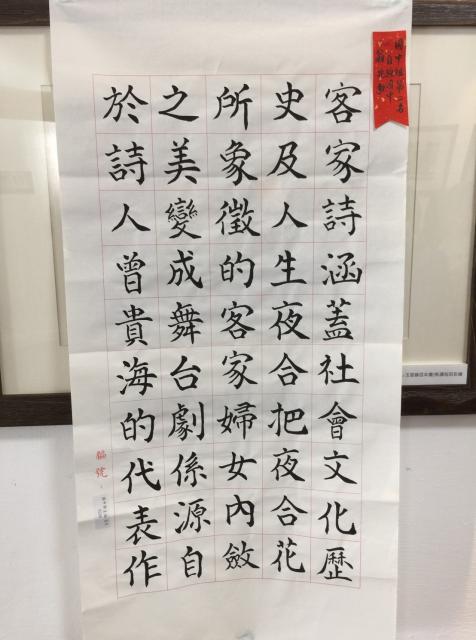 客家詩涵蓋社會文化歷
史及人生夜合把夜合花
所象徵的客家婦女內斂
之美變成舞台劇係源自
於詩人曾貴海的代表作
國中組第一名
編號